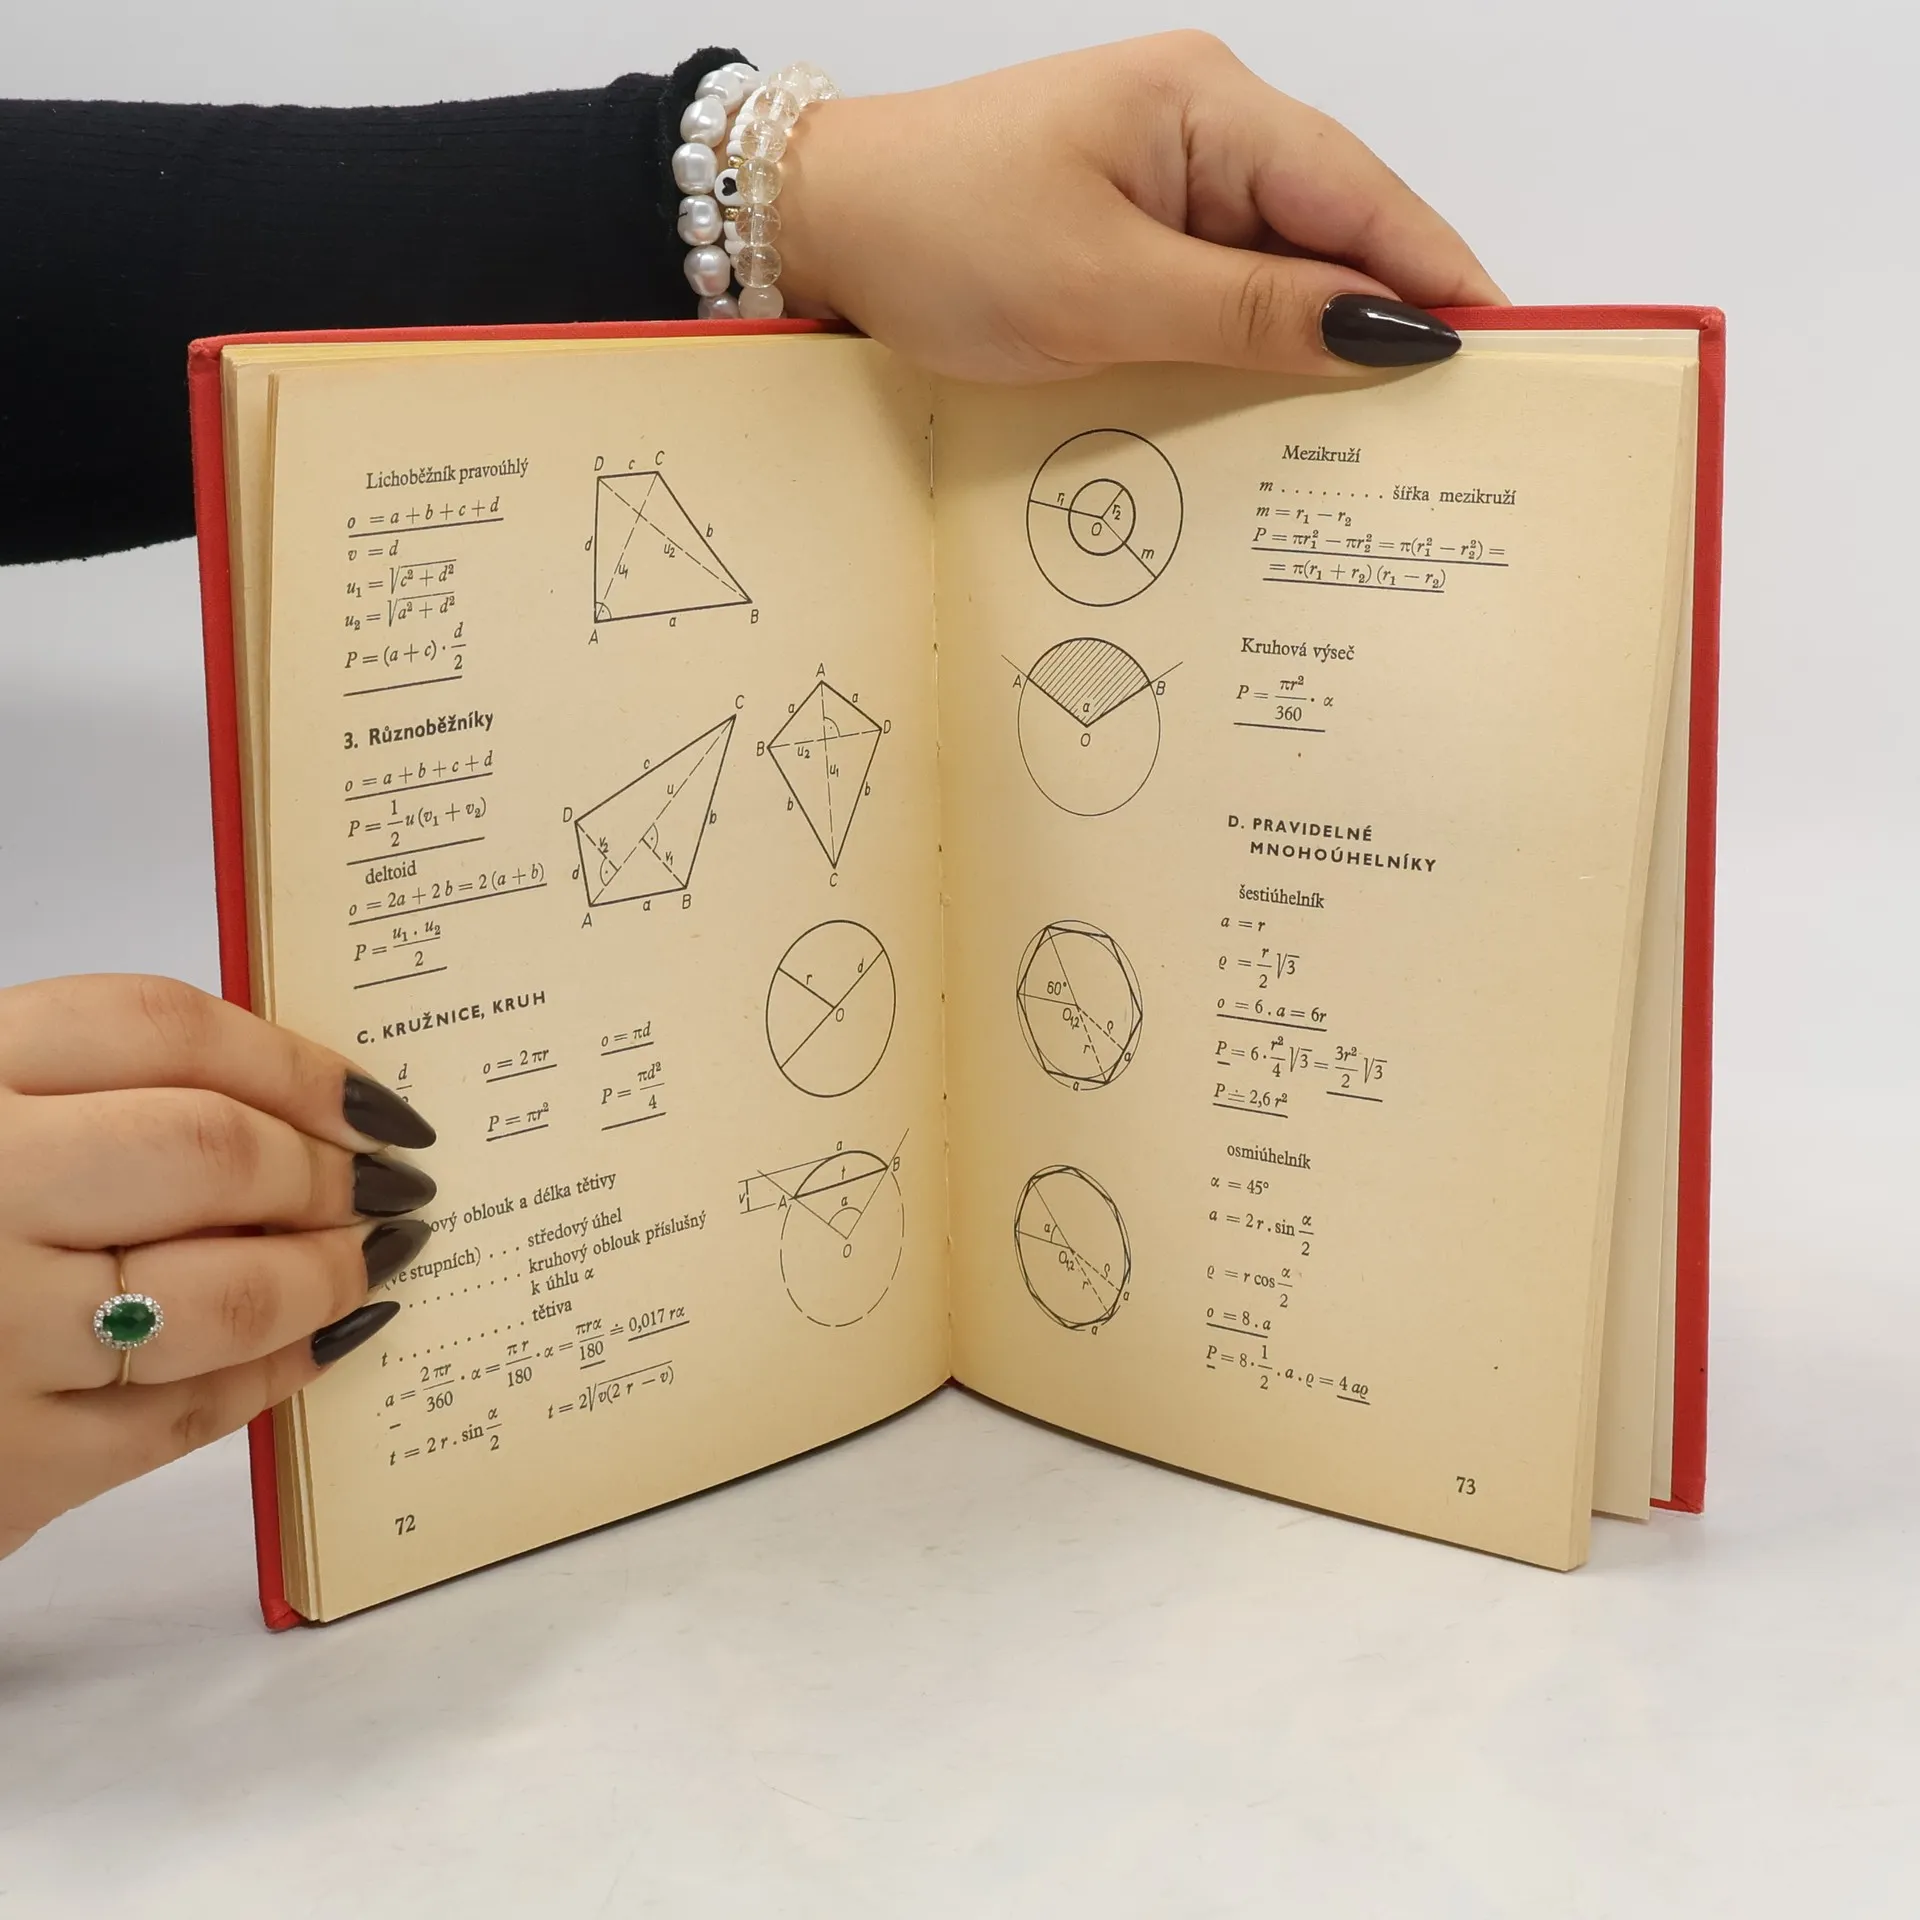 Lichoběžník pravoúhlý
o = a + b + c + d
v = d
u₁ = √(c² + d²)
u₂ = √(a² + d²)
P = (a + c) · d/2
D c C
d u₁ u₂ b
A a B
3. Různoběžníky
o = a + b + c + d
P = 1/2 u (v₁ + v₂)
deltoid
o = 2a + 2b = 2 (a + b)
P = u₁ . u₂ / 2
C
c
D u b
v₂
d v₁
A a B
A
a a
B u₂ D
u₁
b b
C
C. KRUŽNICE, KRUH
d o = 2πr o = πd
P = πr² P = πd²/4
r d
O
ový oblouk a délka tětivy
(ve stupních) . . . středový úhel
. . . . . . . . . kruhový oblouk příslušný
k úhlu α
t . . . . . . . . . . tětiva
a = 2πr/360 · α = πr/180 · α = πrα/180 ≐ 0,017 rα
t = 2r . sin α/2 t = 2√(v(2r − v))
a
v t B
A α
O
72
r₁ r₂
O
m
Mezikruží
m . . . . . . . . šířka mezikruží
m = r₁ − r₂
P = πr₁² − πr₂² = π(r₁² − r₂²) =
= π(r₁ + r₂) (r₁ − r₂)
A α B
O
Kruhová výseč
P = πr²/360 · α
D. PRAVIDELNÉ
MNOHOÚHELNÍKY
šestiúhelník
a = r
ϱ = r/2 √3
o = 6 . a = 6r
P = 6 · r²/4 √3 = 3r²/2 √3
P ≐ 2,6 r²
60°
O₁,₂ ϱ
r a
a
osmiúhelník
α = 45°
a = 2r . sin α/2
ϱ = r cos α/2
o = 8 . a
P = 8 · 1/2 . a . ϱ = 4 aϱ
α
O₁,₂ ϱ
r a
a
73